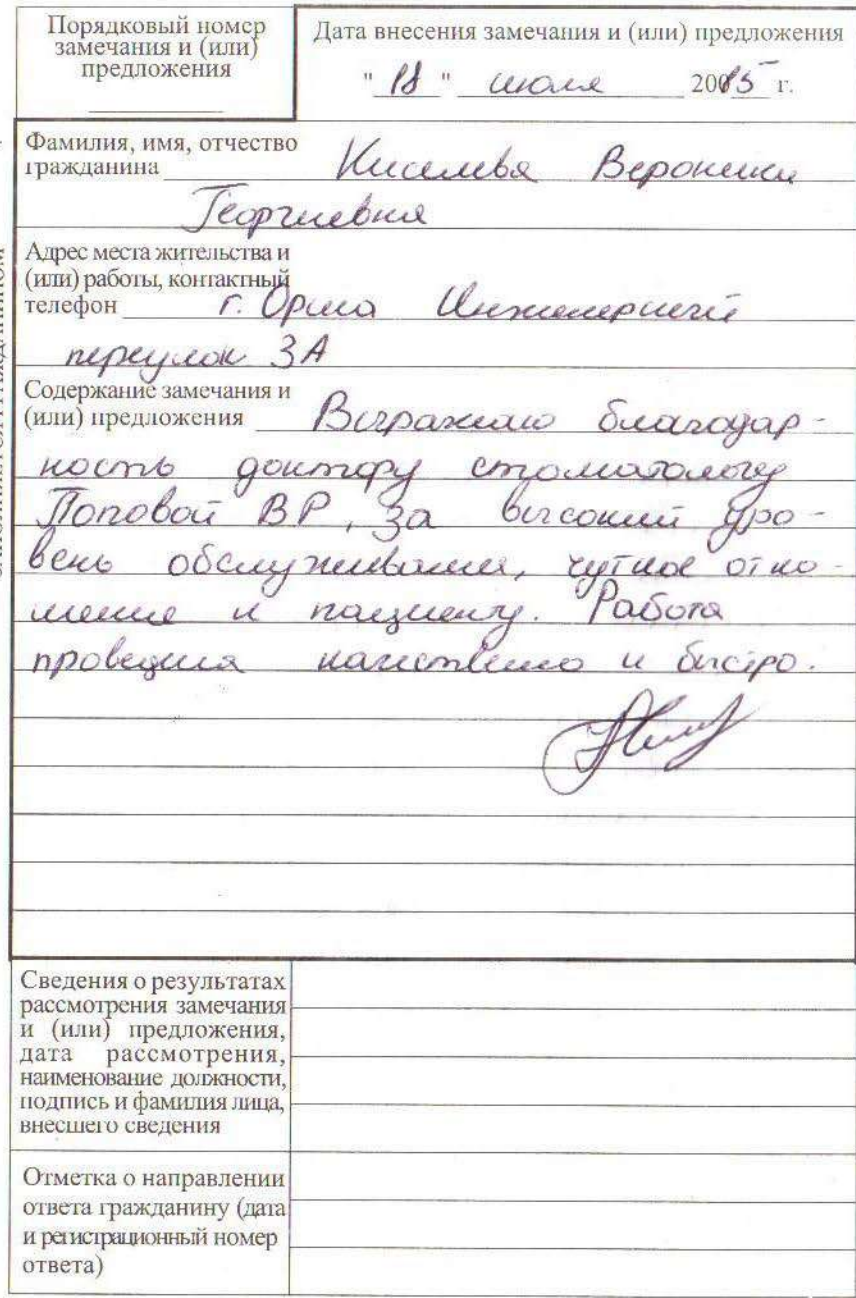 Порядковый номер
замечания и (или)
предложения
Дата внесения замечания и (или) предложения
"18" июля 2015 г.
Фамилия, имя, отчество
гражданина Киселева Вероника
Георгиевна
Адрес места жительства и
(или) работы, контактный
телефон г. Орша Инженерный
переулок 3А
Содержание замечания и
(или) предложения Выражаю благодар-
ность доктору стоматологу
Поповой ВР, за высокий уро-
вень обслуживания, чуткое отно-
шение к пациенту. Работа
проведена качественно и быстро.
Сведения о результатах
рассмотрения замечания
и (или) предложения,
дата рассмотрения,
наименование должности,
подпись и фамилия лица,
внесшего сведения
Отметка о направлении
ответа гражданину (дата
и регистрационный номер
ответа)